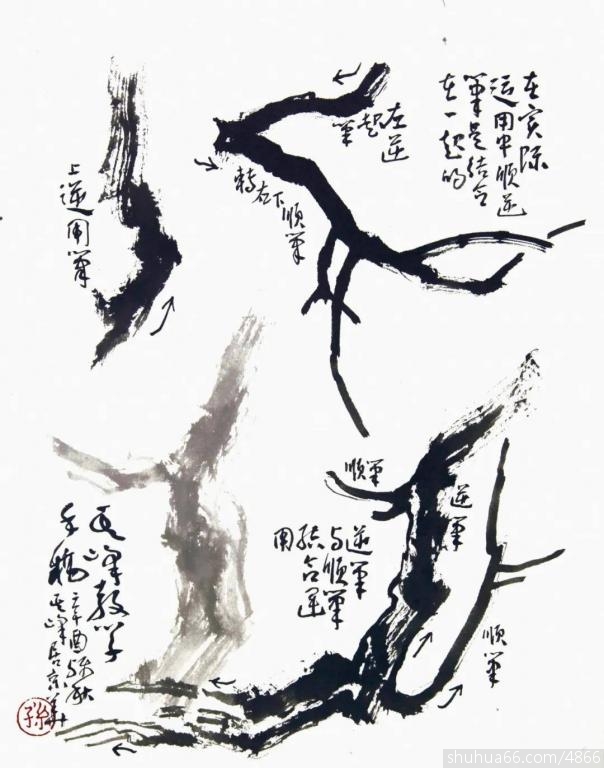 在实际
运用中顺逆
笔是结合
在一起的
左逆
起笔
转右下顺笔
上逆用笔
顺笔
逆笔
逆笔
与顺笔
结合运
用
顺笔
教学
手稿
孙
shuhua66.com/4866